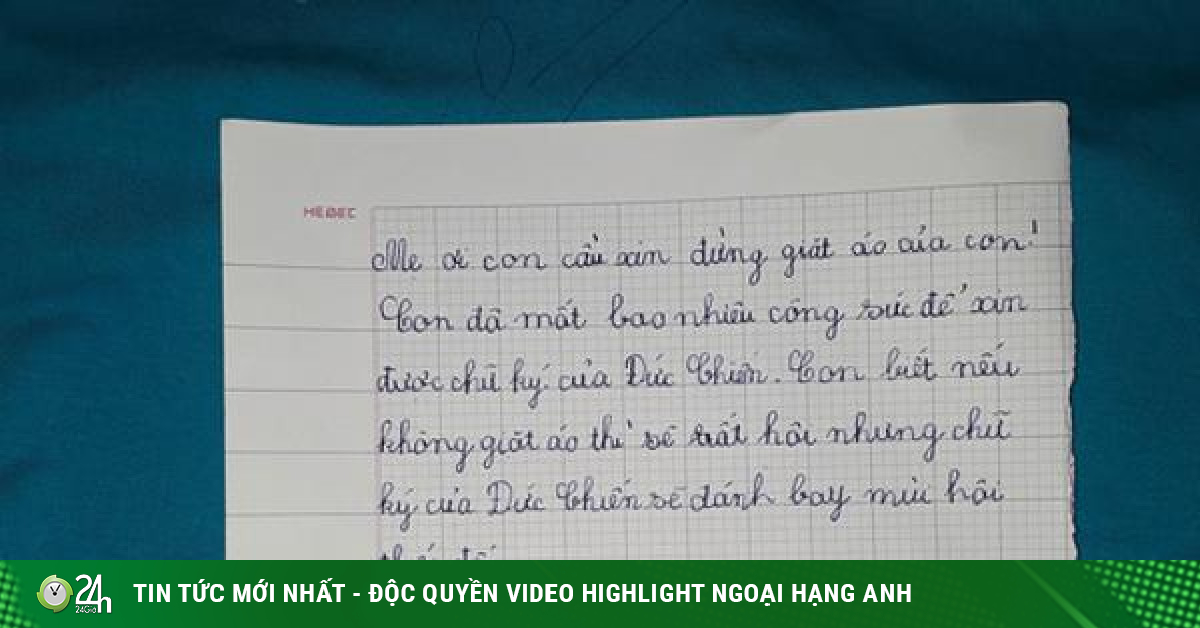 HEDEC
Mẹ ơi con cầu xin đừng giặt áo của con!
Con đã mất bao nhiêu công sức để xin
được chữ ký của Đức Chiến. Con biết nếu
không giặt áo thì sẽ rất hôi nhưng chữ
ký của Đức Chiến sẽ đánh bay mùi hôi
24h
24Giờ
TIN TỨC MỚI NHẤT - ĐỘC QUYỀN VIDEO HIGHLIGHT NGOẠI HẠNG ANH